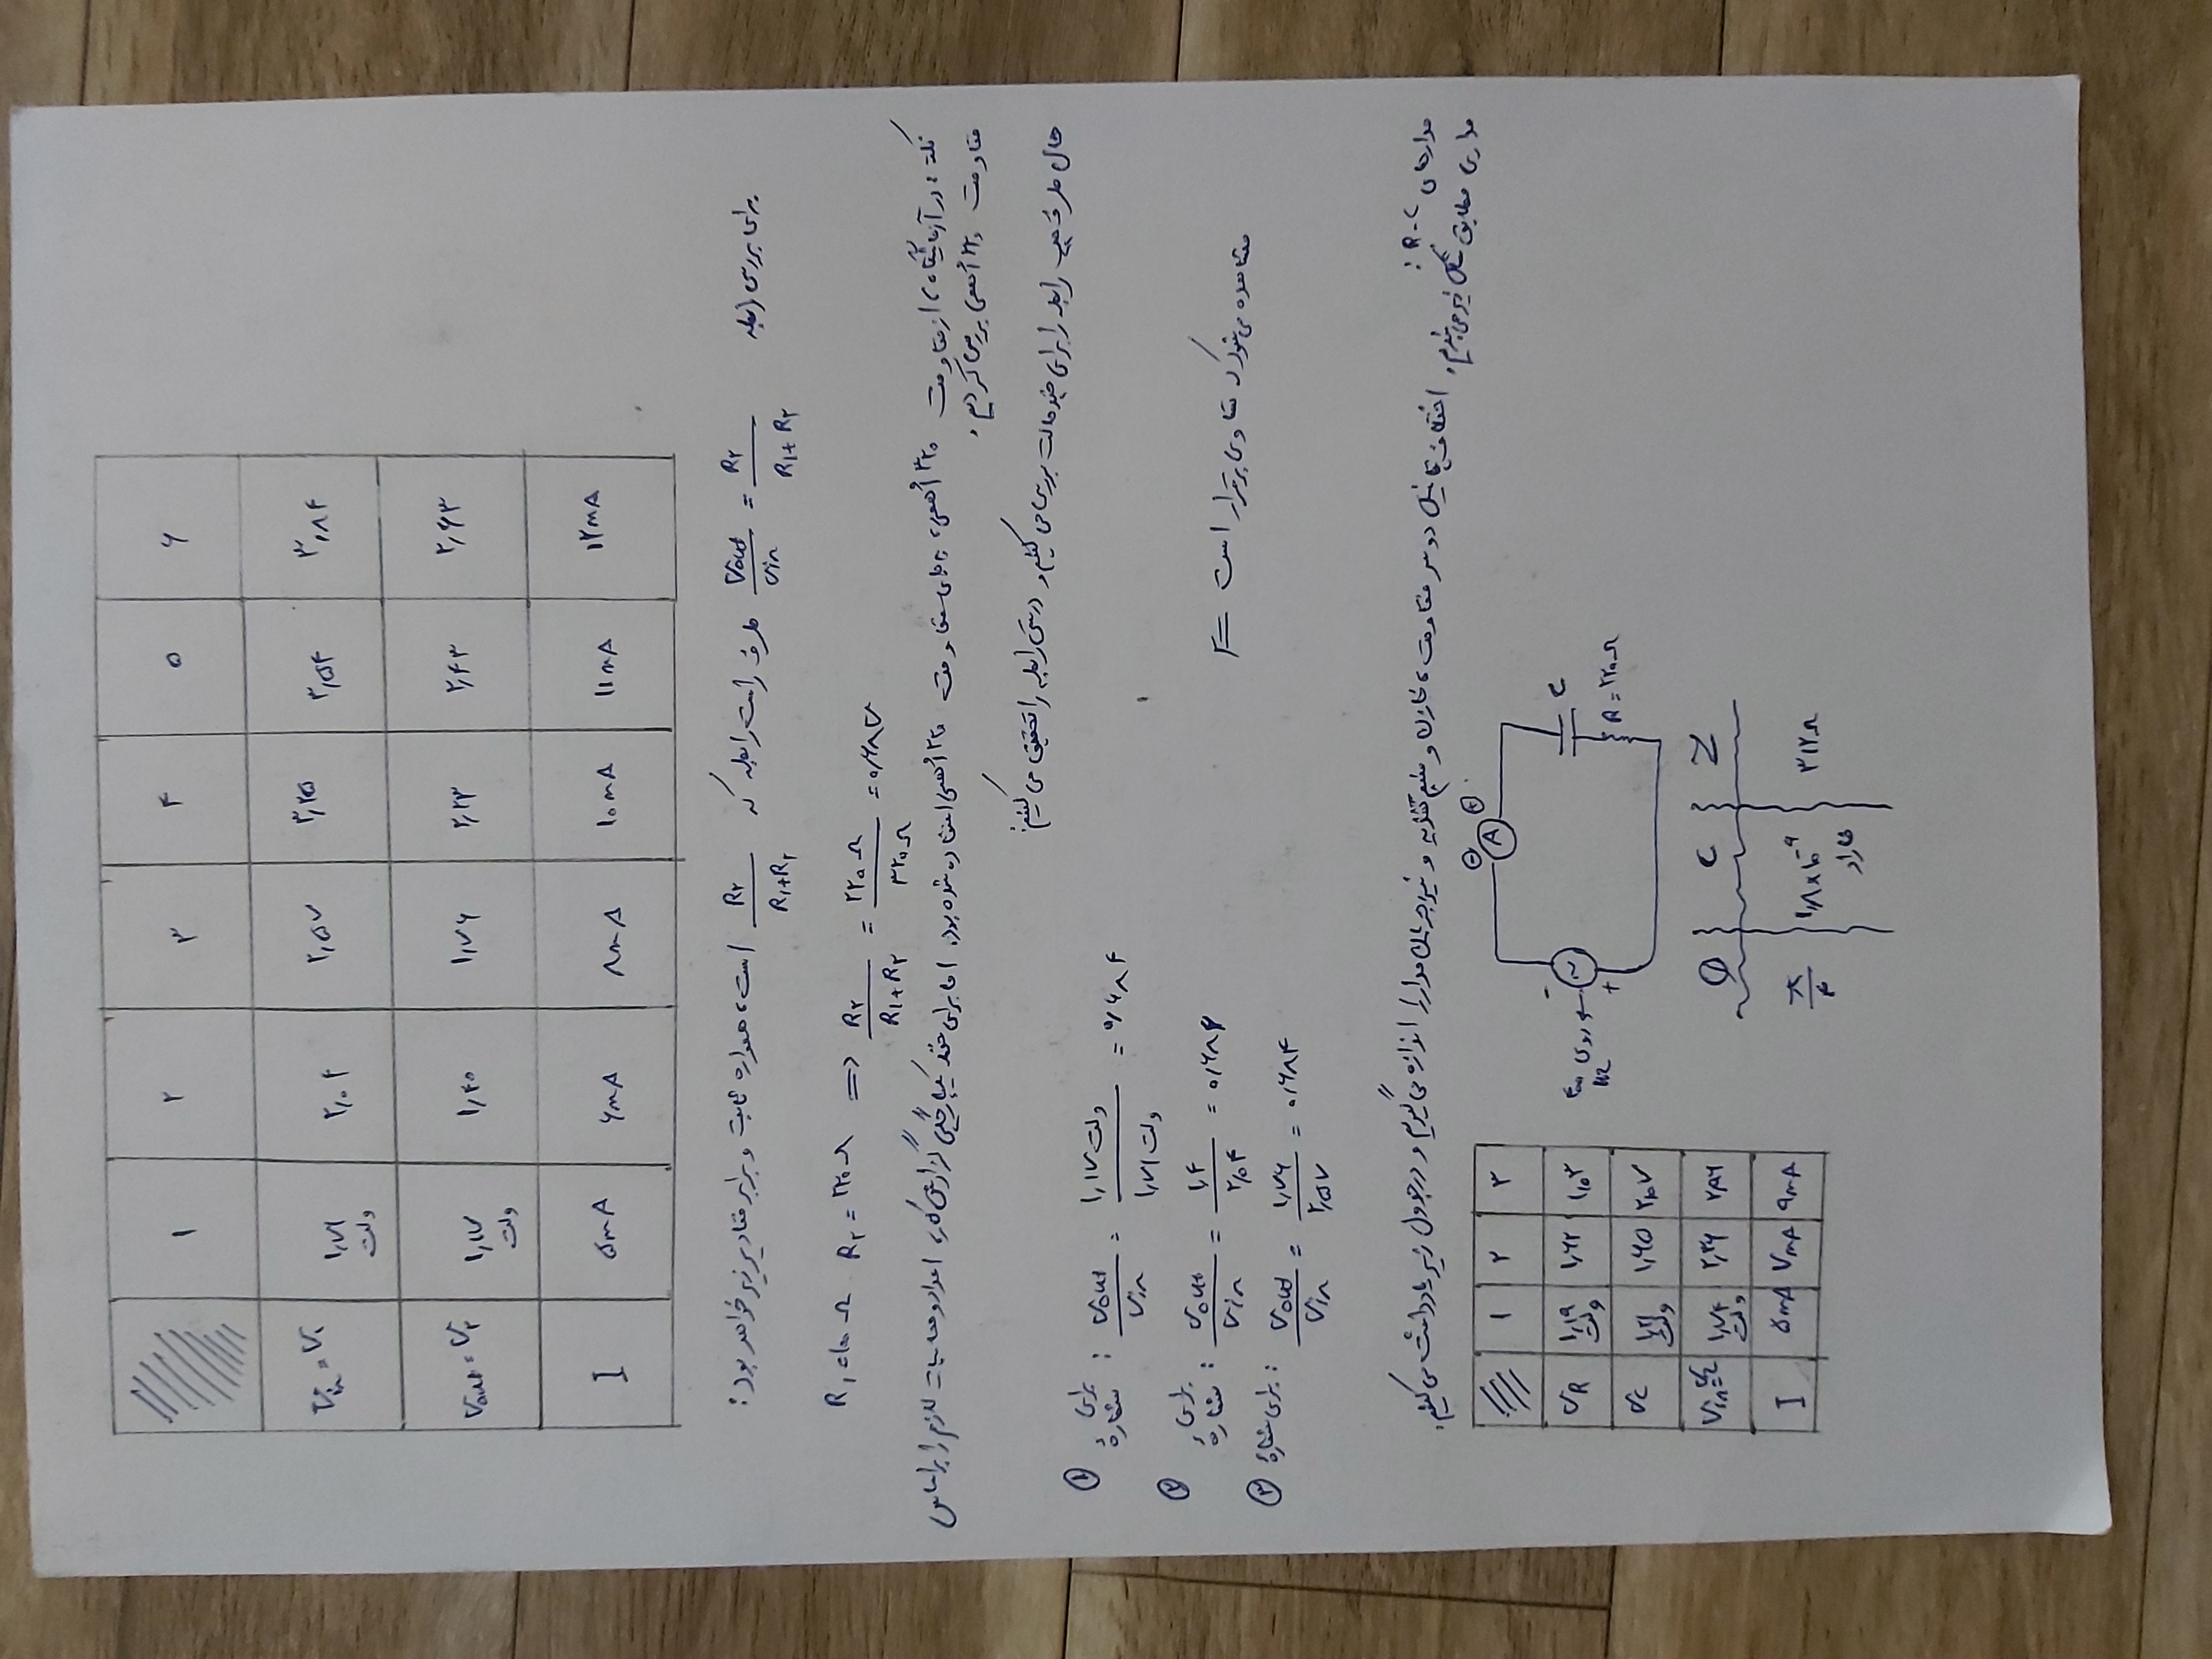 ۱ ۲ ۳ ۴ ۵ ۶
Vin = V۱ ۱,۷۱ ولت ۲,۰۴ ۲,۵۷ ۳,۲۵ ۳,۵۴ ۳,۸۴
Vout = V۲ ۱,۱۷ ولت ۱,۴۰ ۱,۷۶ ۲,۲۳ ۲,۴۳ ۲,۶۳
I ۵mA ۶mA ۸mA ۱۰mA ۱۱mA ۱۲mA
برای بررسی رابطه Vout/Vin = R۲/(R۱+R۲) طرف راست رابطه که R۲/(R۱+R۲) است، همواره ثابت و برابر مقادیر زیر خواهد بود:
R۱ = ۱۰۰ Ω R۲ = ۲۲۰ Ω ⇒ R۲/(R۱+R۲) = ۲۲۰ Ω/۳۲۰ Ω = ۰,۶۸۷
نکته: در آزمایشگاه، از مقاومت ۳۲۰ اُهمی، به جای مقاومت ۲۲۰ اُهمی استفاده شده بود. اما برای حفظ یکپارچگی گزارش کار، اعداد و محاسبات لازم را براساس
مقاومت ۲۲۰ اُهمی بررسی کردیم.
حال طرف چپ رابطه را برای چند حالت بررسی می کنیم و درستی رابطه را تحقیق می کنیم:
① برای شمارهٔ : Vout/Vin = ۱,۱۷ ولت/۱,۷۱ ولت = ۰,۶۸۴
② برای شمارهٔ : Vout/Vin = ۱,۴/۲,۰۴ = ۰,۶۸۶
مشاهده می شود که تساوی برقرار است
③ برای شمارهٔ : Vout/Vin = ۱,۷۶/۲,۵۷ = ۰,۶۸۴
مدارهای R-C :
مداری مطابق شکل زیر می بندیم. اختلاف پتانسیل دو سر مقاومت، خازن و منبع تغذیه و نیز جریان مدار را اندازه می گیریم و در جدول زیر یادداشت می کنیم.
۱ ۲ ۳
VR ۱,۱۹ ولت ۱,۶۲ ۲,۰۳
VC ۱,۲۱ ولت ۱,۶۵ ۲,۰۷
Vin ۱,۷۴ ولت ۲,۳۶ ۲,۸۶
I ۵mA ۷mA ۹mA
⊖ A ⊕
-
~
+
روی ۴۰۰ Hz
C
R = ۲۲۰ Ω
Ø C Z
π/۴ ۱,۸×۱۰⁻۹ فاراد ۳۱۲ Ω